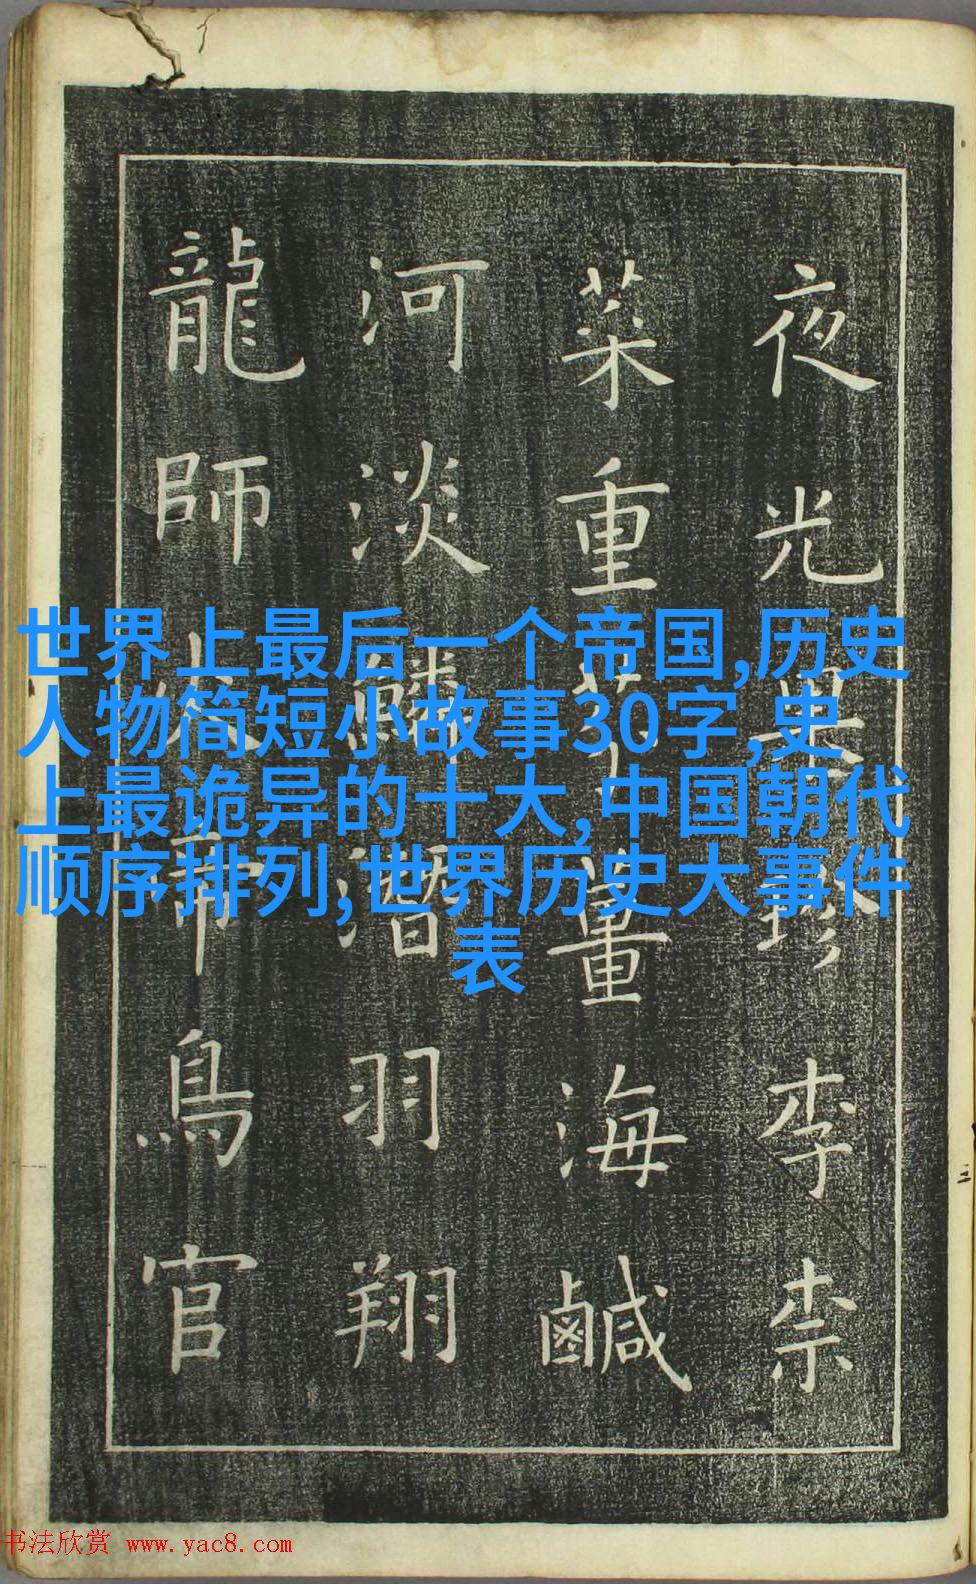 夜光果珍李柰
菜重芥薑海鹹
河淡鱗潛羽翔
龍師火帝鳥官
世界上最后一个帝国,历史
人物简短小故事30字,史
上最诡异的十大,中国朝代
顺序排列,世界历史大事件
表
书法欣赏 www.yac8.com